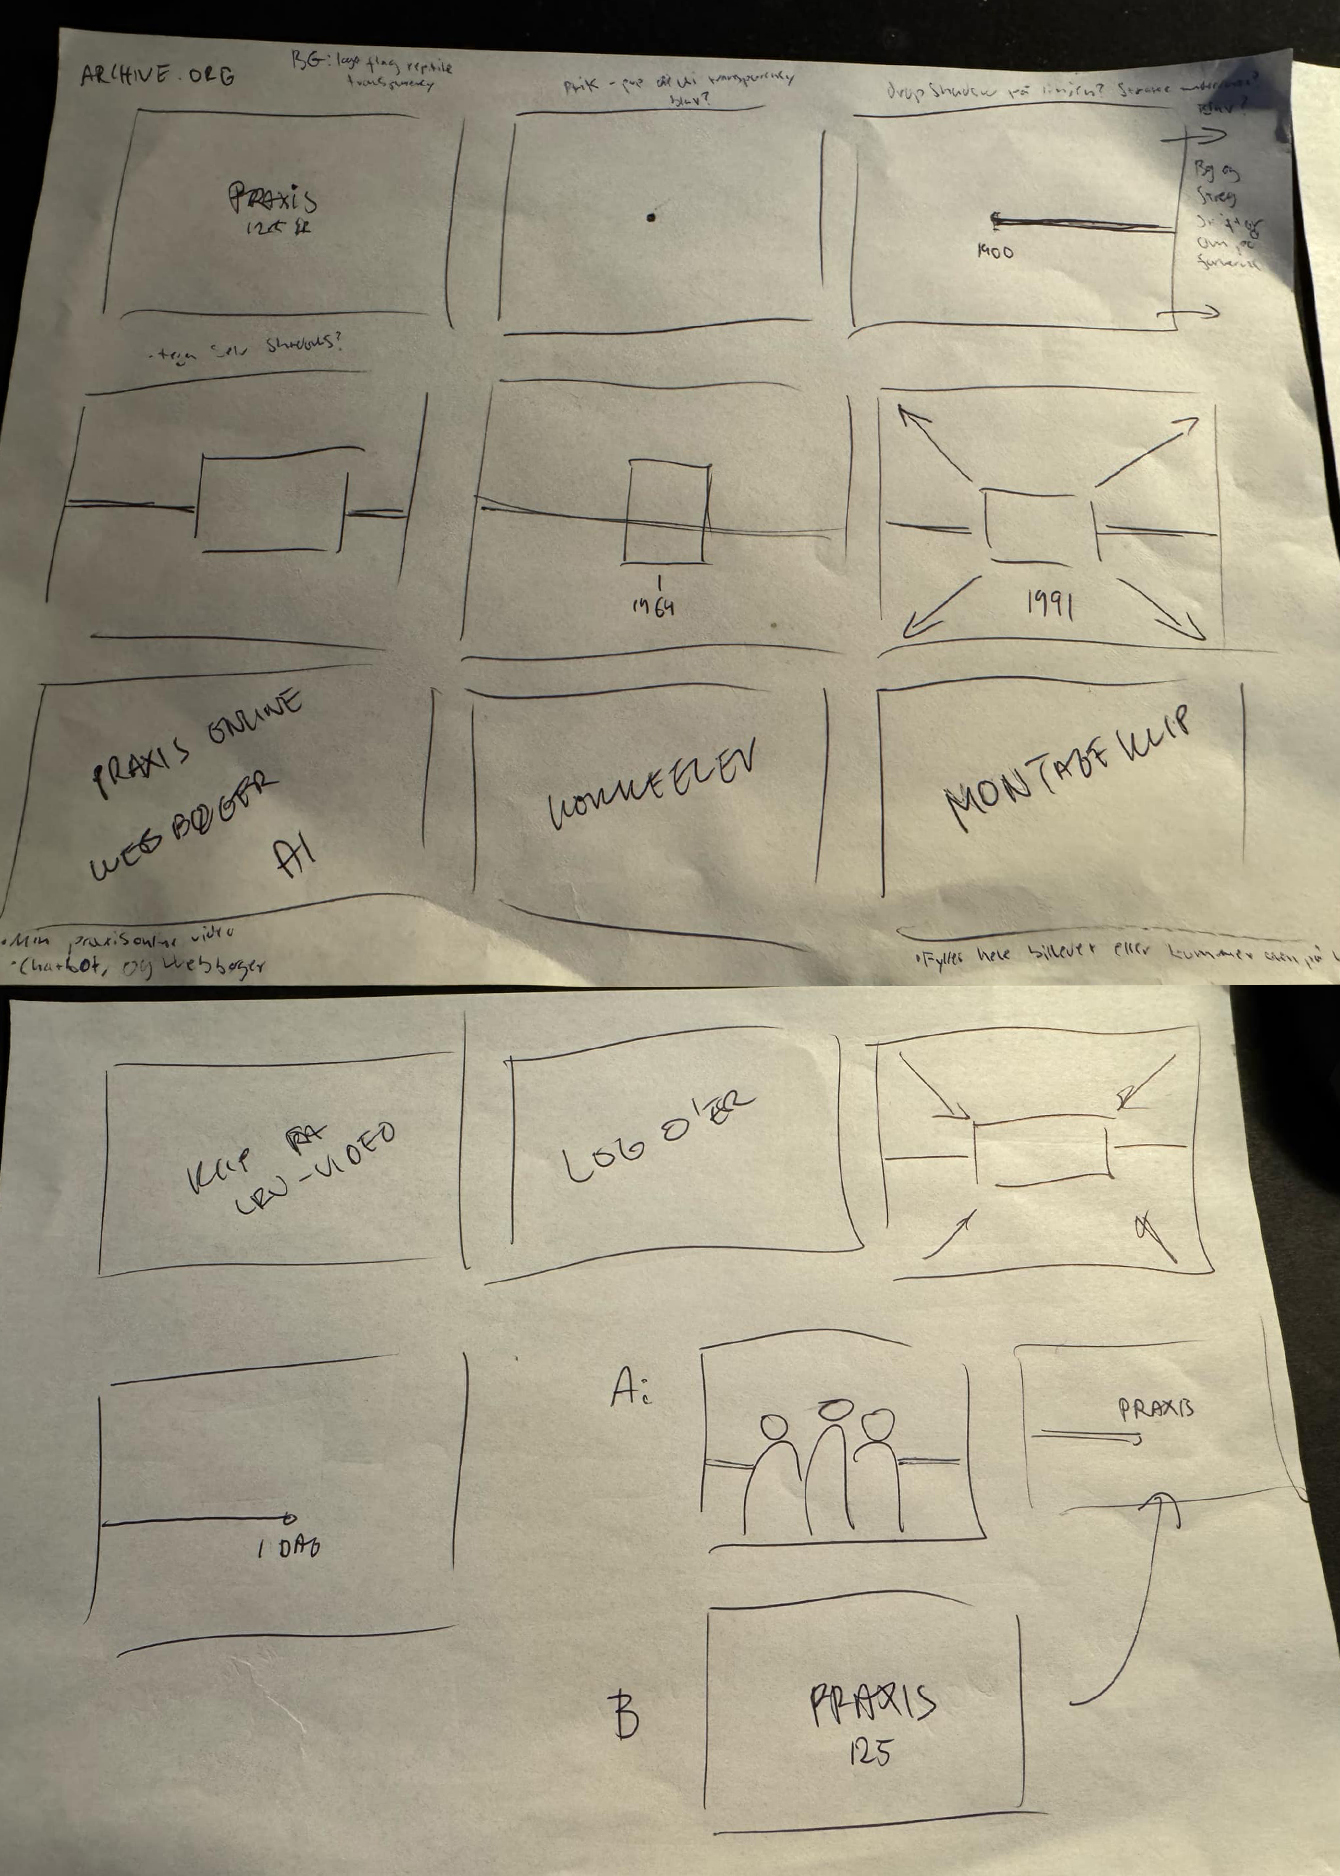 ARCHIVE.ORG
BG: lage flag reptile
transparency
Prik - transparency
blav?
Drop Shadow på linjen?
blav?
PRAXIS
125 ÅR
1900
Bg og
Streg
skifter
om på
farverne
·tegn selv shadows?
1964
1991
PRAXIS ONLINE
WEBBØGER
AI
KOKKEELEV
MONTAGEKLIP
·Min praxisonline video
·Chatbot, og Webbøger
·Fylles hele billedet eller kommer
KLIP FRA
LRU-VIDEO
LOGO'ER
I DAG
A:
PRAXIS
B
PRAXIS
125